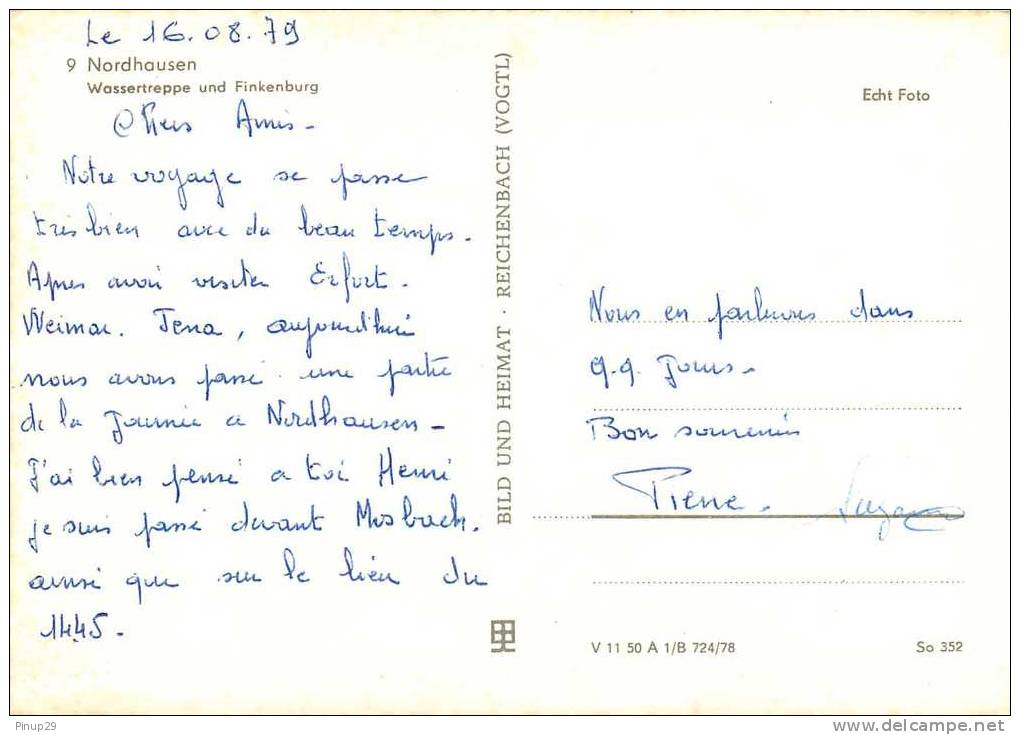 Le 16.08.79
9 Nordhausen
Wassertreppe und Finkenburg
Chers Amis -
Notre voyage se passe
tres bien avec du beau temps.
Apres avoir visiter Erfort.
Weimar. Jena, aujourdhui
nous avons passé une partie
de la Journée a Nordhausen -
J'ai bien pensé a toi Henri
je suis passé devant Mosbach.
ainsi que sur le lieu du
1445.
BILD UND HEIMAT · REICHENBACH (VOGTL)
Echt Foto
Nous en parlerons dans
q.q. Jours -
Bon souvenir
Pierre.
V 11 50 A 1/B 724/78
So 352
Pinup29
www.delcampe.net